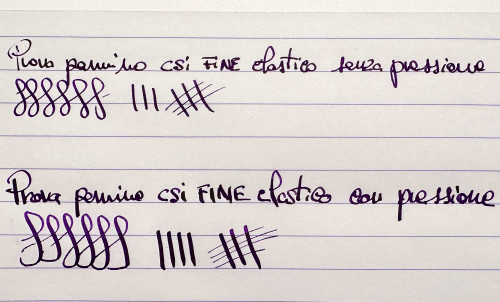 Prova pennino csi FINE elastico senza pressione
Prova pennino csi FINE elastico con pressione